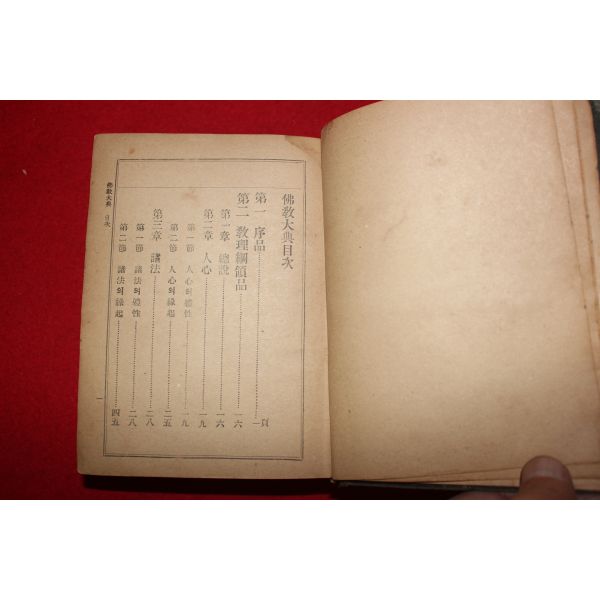 佛敎大典目次
第一 序品……一頁
第二 敎理綱領品……一六
第一章 總說……一六
第二章 人心……一九
第一節 人心의體性……一九
第二節 人心의緣起……二五
第三章 諸法……二八
第一節 諸法의體性……二八
第二節 諸法의緣起……四五
佛敎大典 目次
一